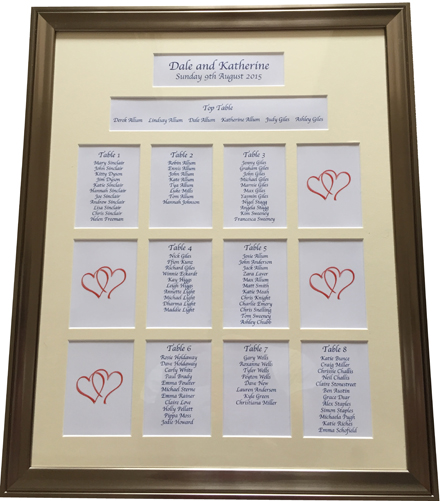 Dale and Katherine
Sunday 9th August 2015
Top Table
Derek Allum Lindsay Allum Dale Allum Katherine Allum Judy Giles Ashley Giles
Table 1
Mary Sinclair
John Sinclair
Kitty Dyson
Jim Dyson
Katie Sinclair
Hannah Sinclair
Joe Sinclair
Andrew Sinclair
Lisa Sinclair
Chris Sinclair
Helen Freeman
Table 2
Robin Allum
Denis Allum
John Allum
Kate Allum
Tya Allum
Luke Mills
Tom Allum
Hannah Johnson
Table 3
Jenny Giles
Graham Giles
John Giles
Michael Giles
Mervie Giles
Max Giles
Yasmin Giles
Nigel Stagg
Angela Stagg
Ken Sweeney
Francesca Sweeney
Table 4
Nick Giles
Ffion Kunz
Richard Giles
Winnie Eckardt
Kay Higgs
Leigh Higgs
Annette Light
Michael Light
Dharma Light
Maddie Light
Table 5
Josie Allum
John Anderson
Jack Allum
Zara Lover
Max Allum
Matt Smith
Katie Noah
Chris Knight
Charlie Emery
Chris Snelling
Tom Sweeney
Ashley Chubb
Table 6
Rosie Holdaway
Dave Holdaway
Carly White
Paul Brady
Emma Poulter
Michael Sterne
Emma Rainer
Claire Love
Holly Pellatt
Pippa Moss
Jodie Howard
Table 7
Gary Wells
Roxanne Wells
Tyler Wells
Peyton Wells
Dave New
Lauren Anderson
Kyle Green
Christiana Miller
Table 8
Katie Bunce
Craig Miller
Christie Challis
Neil Challis
Claire Stonestreet
Ben Austin
Grace Dear
Alex Staples
Simon Staples
Michaela Pugh
Katie Riches
Emma Schofield